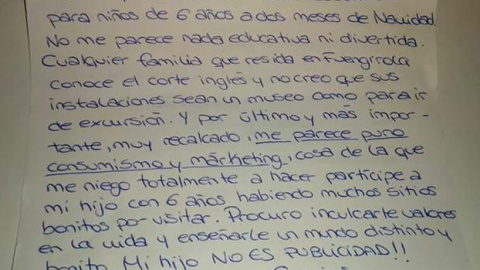 para niños de 6 años a dos meses de Navidad.
No me parece nada educativa ni divertida.
Cualquier familia que resida en Fuengirola
conoce el corte inglés y no creo que sus
instalaciones sean un museo como para ir
de excursión. Y por último y más impor-
tante, muy recalcado, me parece puro
consumismo y márketing, cosa de la que
me niego totalmente a hacer partícipe a
mi hijo con 6 años habiendo muchos sitios
bonitos por visitar. Procuro inculcarle valores
en la vida y enseñarle un mundo distinto y
bonito. Mi hijo NO ES PUBLICIDAD!!